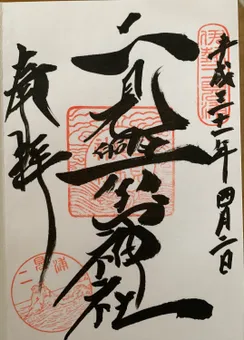 伊勢二見浦
平成三十一年四月二日
二見興玉神社
奉拝